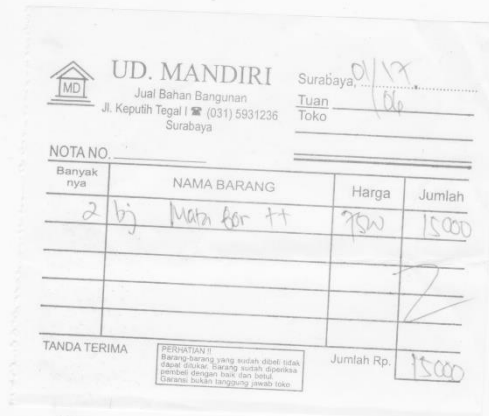 MD
UD. MANDIRI
Jual Bahan Bangunan
Jl. Keputih Tegal I ☎ (031) 5931236
Surabaya
Surabaya, 01/17
/06
Tuan
Toko
NOTA NO.
Banyak nya NAMA BARANG Harga Jumlah
2 bj Mata bor ++ 7500 15000
TANDA TERIMA
PERHATIAN !!
Barang-barang yang sudah dibeli tidak
dapat ditukar, Barang sudah diperiksa
pembeli dengan baik dan betul.
Garansi bukan tanggung jawab toko
Jumlah Rp. 15000